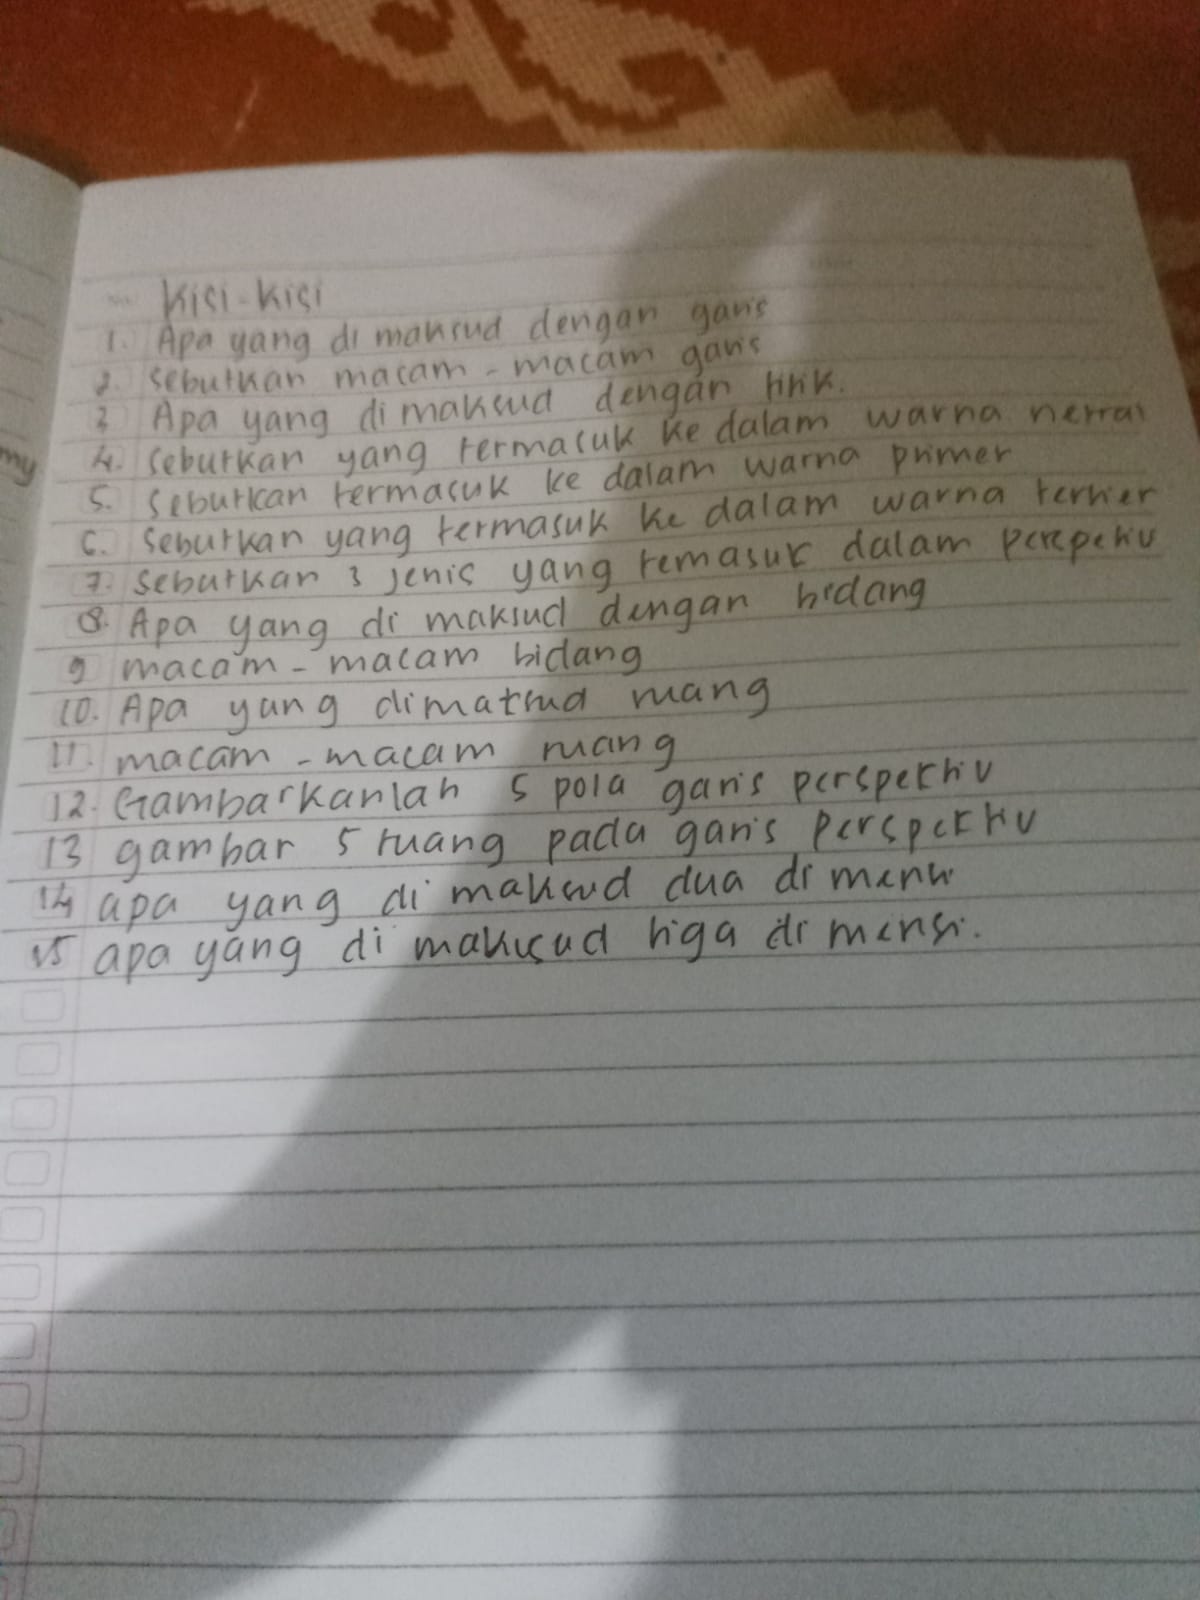 Kisi-Kisi
1. Apa yang di maksud dengan garis
2. Sebutkan macam-macam garis
3 Apa yang di maksud dengan titik.
4. Sebutkan yang termasuk ke dalam warna netral
5. Sebutkan termasuk ke dalam warna primer
6. Sebutkan yang termasuk ke dalam warna tertier
7. Sebutkan 3 jenis yang temasuk dalam perepektiv
8. Apa yang di maksud dengan bidang
9 macam-macam bidang
10. Apa yang dimaksud ruang
11. macam-macam ruang
12. Gambarkanlah 5 pola garis perspektiv
13 gambar 5 ruang pada garis perspektiv
14 apa yang di maksud dua di mensi
15 apa yang di maksud tiga di mensi.
my